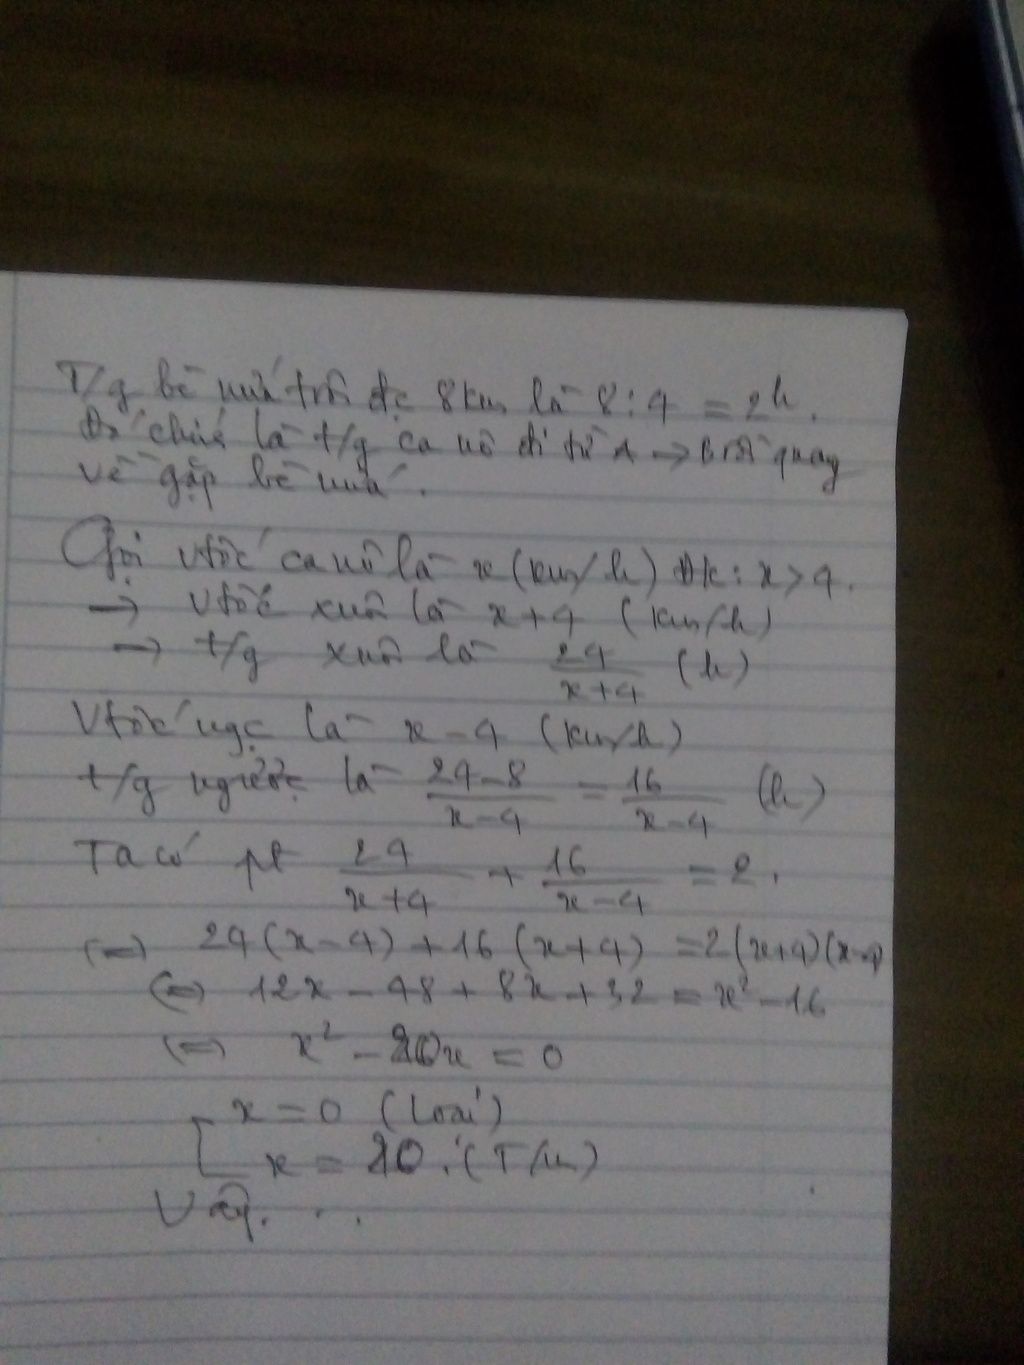 T/g bè nứa trôi đc 8km là 8:4 = 2h.
Đó chính là t/g ca nô đi từ A → B rồi quay
về gặp bè nứa.
Gọi vtốc ca nô là x (km/h) ĐK: x > 4.
→ vtốc xuôi là x+4 (km/h)
→ t/g xuôi là 24/(x+4) (h)
Vtốc ngc là x-4 (km/h)
t/g ngược là (24-8)/(x-4) = 16/(x-4) (h)
Ta có pt 24/(x+4) + 16/(x-4) = 2.
<=> 24(x-4) + 16(x+4) = 2(x+4)(x-4)
<=> 12x - 48 + 8x + 32 = x² - 16
<=> x² - 20x = 0
x = 0 (loại)
x = 20. (T/m)
Vậy. . .